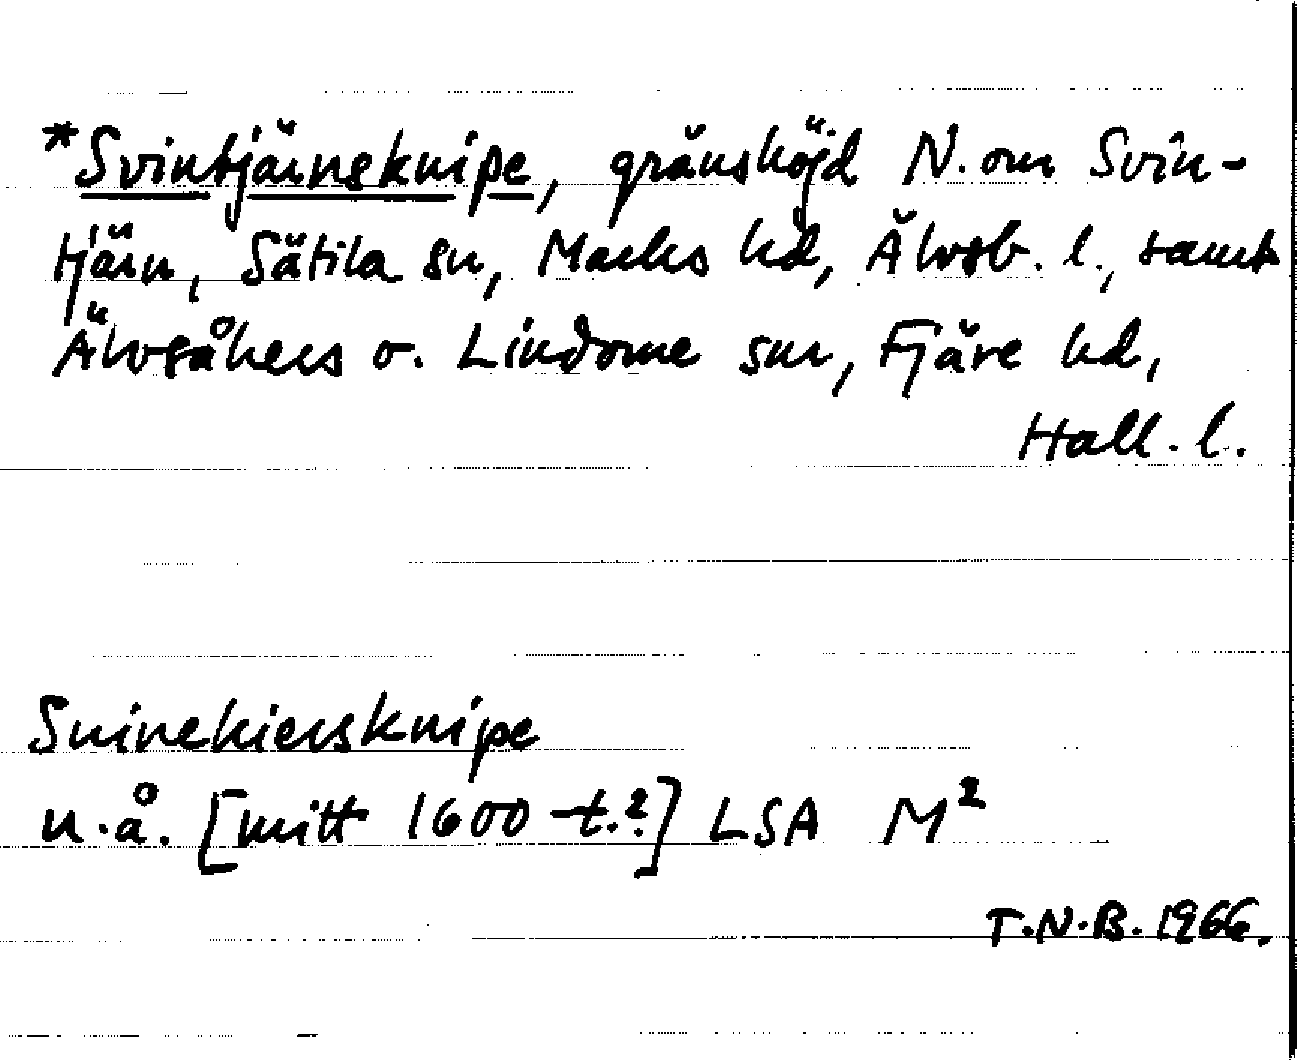 *Svintjärnsknipe, gränshöjd N. om Svin-
tjärn, Sätila sn, Marks hd, Älvsb. l., samt
Älvsåkers o. Lindome snr, Fjäre hd,
Hall. l.
Suinekiersknipe
u.å. [mitt 1600-t.?] LSA M²
T.N.B. 1966.